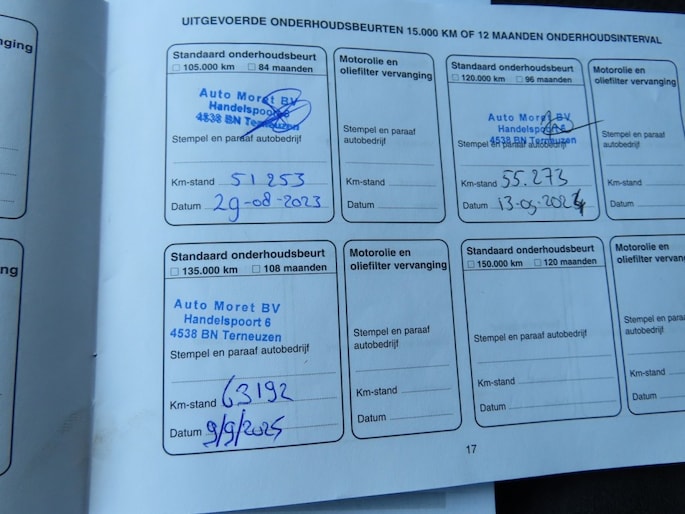 UITGEVOERDE ONDERHOUDSBEURTEN 15.000 KM OF 12 MAANDEN ONDERHOUDSINTERVAL
ging
Standaard onderhoudsbeurt
☐ 105.000 km ☐ 84 maanden
Auto Moret BV
Handelspoort 6
4538 BN Terneuzen
Stempel en paraaf autobedrijf
Km-stand 51253
Datum 29-08-2023
Motorolie en
oliefilter vervanging
Stempel en paraaf
autobedrijf
Km-stand
Datum
Standaard onderhoudsbeurt
☐ 120.000 km ☐ 96 maanden
Auto Moret BV
Handelspoort 6
4538 BN Terneuzen
Stempel en paraaf autobedrijf
Km-stand 55.273
Datum 13-05-2024
Motorolie en
oliefilter vervanging
Stempel en paraaf
autobedrijf
Km-stand
Datum
ng
Standaard onderhoudsbeurt
☐ 135.000 km ☐ 108 maanden
Auto Moret BV
Handelspoort 6
4538 BN Terneuzen
Stempel en paraaf autobedrijf
Km-stand 63192
Datum 9/9/2025
Motorolie en
oliefilter vervanging
Stempel en paraaf
autobedrijf
Km-stand
Datum
Standaard onderhoudsbeurt
☐ 150.000 km ☐ 120 maanden
Stempel en paraaf autobedrijf
Km-stand
Datum
Motorolie en
oliefilter vervanging
Stempel en paraaf
autobedrijf
Km-stand
Datum
17